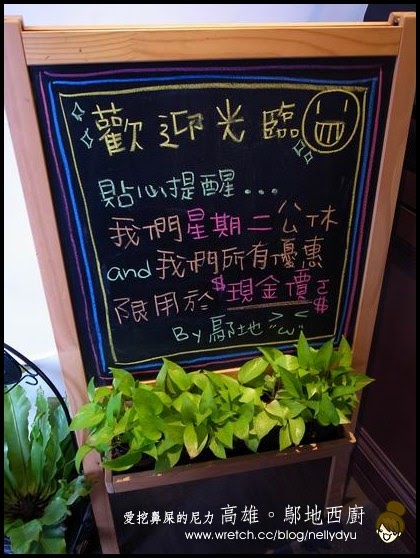 歡迎光臨
貼心提醒...
我們星期二公休
and我們所有優惠
限用於$現金價$
By 鄔地 >"ω"<
愛挖鼻屎的尼力 高雄。鄔地西廚
www.wretch.cc/blog/nellydyu